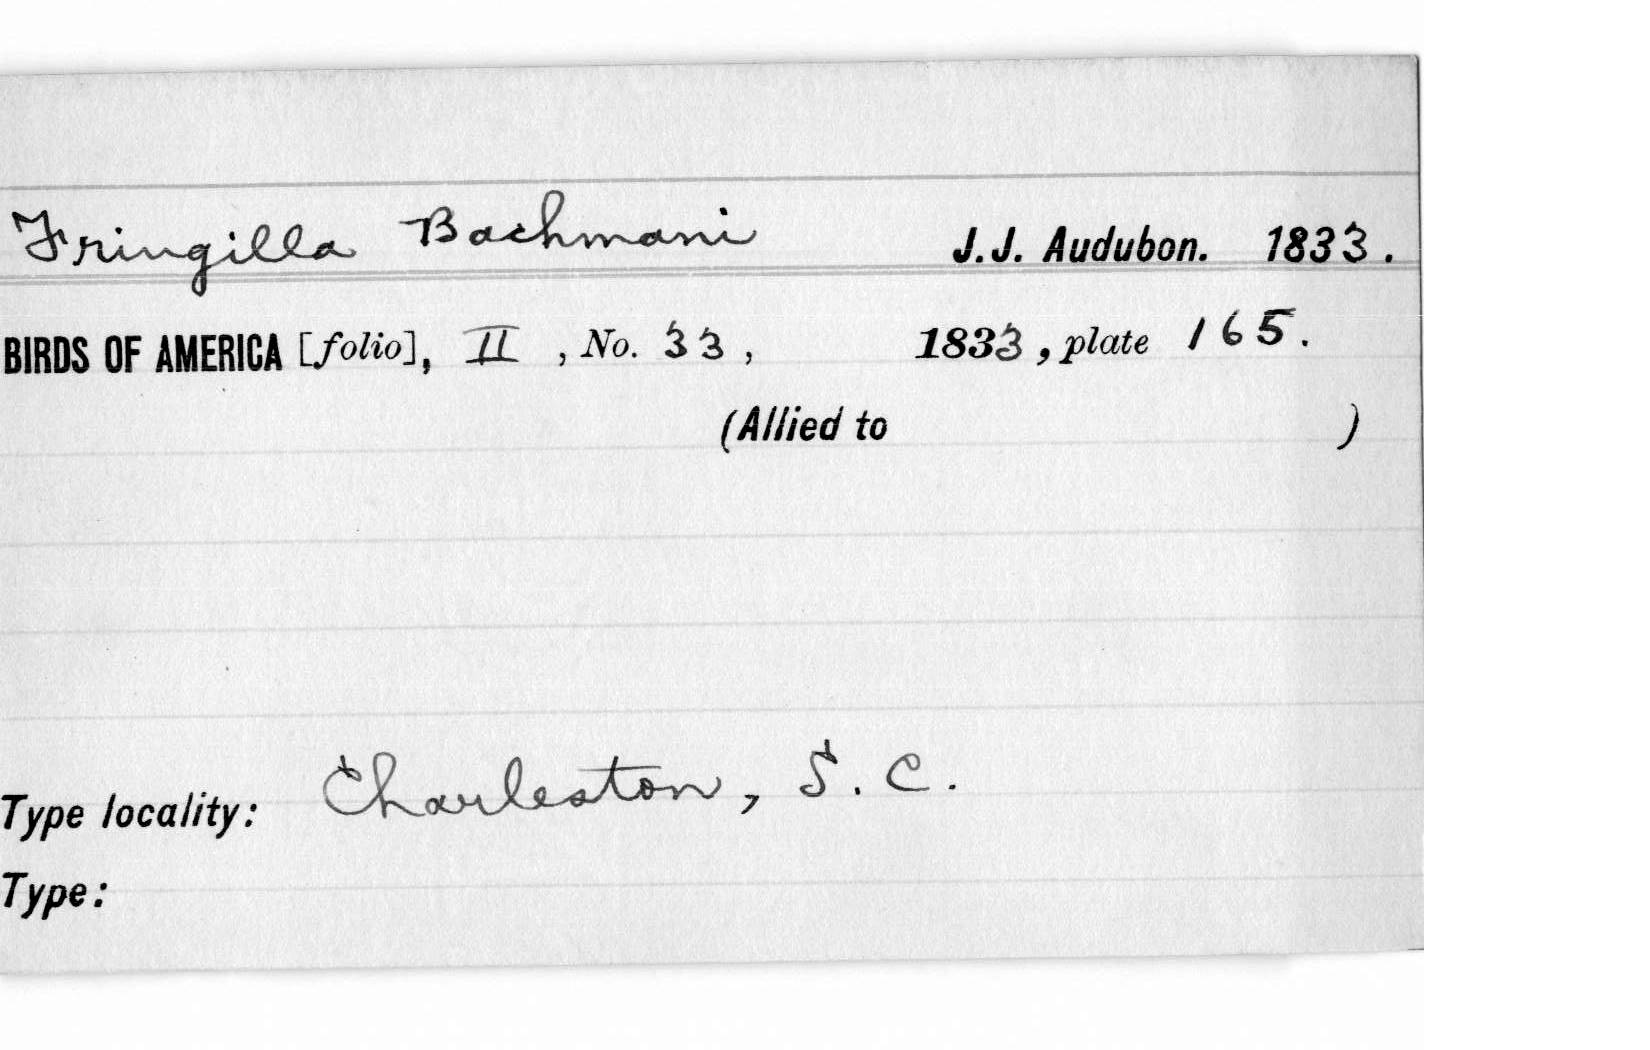 Fringilla Bachmani J.J. Audubon. 1833.
BIRDS OF AMERICA [folio], II, No. 33, 1833, plate 165.
(Allied to )
Type locality: Charleston, S. C.
Type: